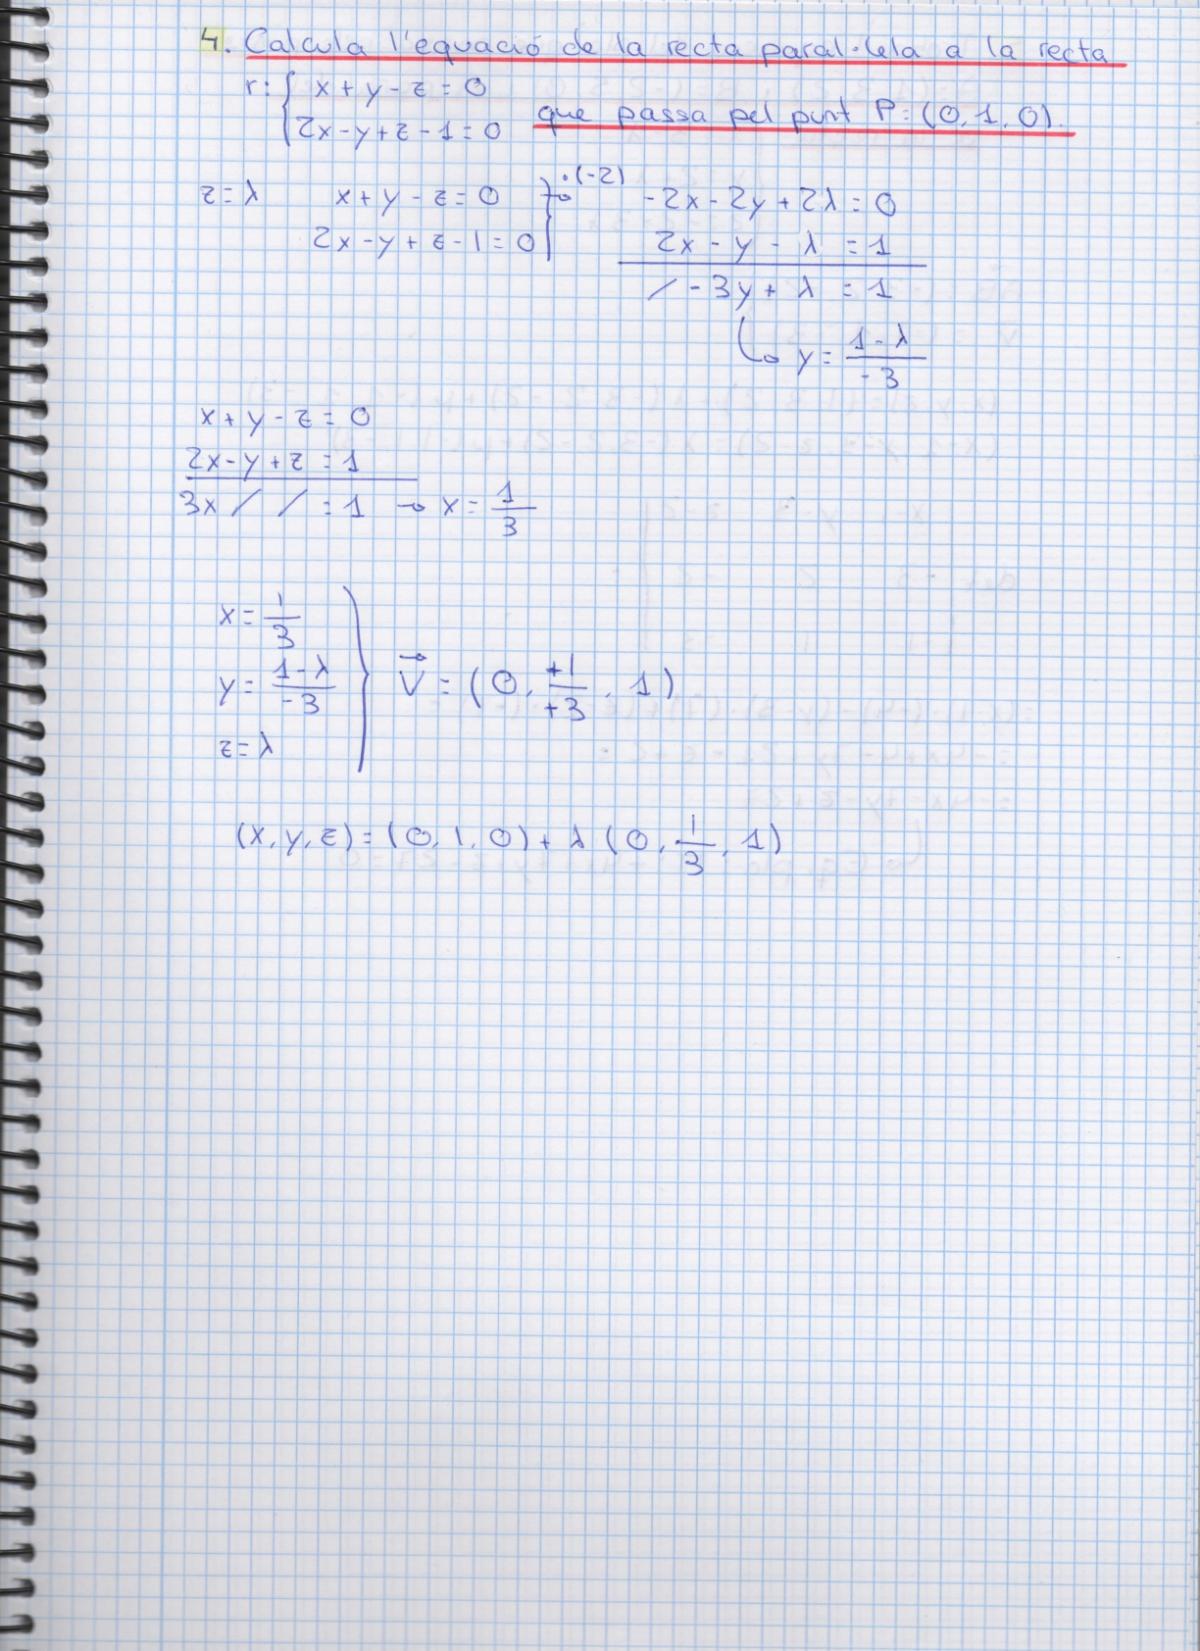 4. Calcula l'equació de la recta paral·lela a la recta
r: { x + y - z = 0
2x - y + z - 1 = 0 que passa pel punt P: (0, 1, 0).
z = λ x + y - z = 0 } ·(-2) -2x - 2y + 2λ = 0
2x - y + z - 1 = 0 2x - y - λ = 1
/ - 3y + λ = 1
y = (1 - λ)/(-3)
x + y - z = 0
2x - y + z = 1
3x / / = 1 → x = 1/3
x = 1/3
y = (1 - λ)/(-3) } V⃗ = (0, +1/+3, 1)
z = λ
(x, y, z) = (0, 1, 0) + λ (0, 1/3, 1)